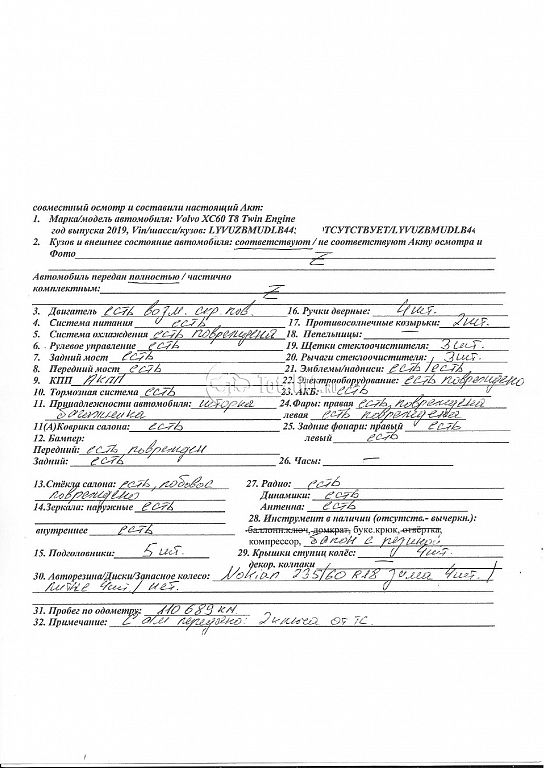 совместный осмотр и составили настоящий Акт:
1. Марка/модель автомобиля: Volvo XC60 T8 Twin Engine
год выпуска 2019, Vin/шасси/кузов: LYVUZBMUDLB44; ОТСУТСТВУЕТ/LYVUZBMUDLB44
2. Кузов и внешнее состояние автомобиля: соответствуют / не соответствуют Акту осмотра и
Фото Z
Автомобиль передан полностью / частично
комплектным: Z
3. Двигатель есть возм. скр. пов.
4. Система питания есть
5. Система охлаждения есть повреждена
6. Рулевое управление есть
7. Задний мост есть
8. Передний мост есть
9. КПП АКПП
10. Тормозная система есть
11. Принадлежности автомобиля: шторка
багажника
11(А)Коврики салона: есть
12. Бампер:
Передний: есть поврежден
Задний: есть
13.Стёкла салона: есть, лобовое
повреждено
14.Зеркала: наружные есть
внутреннее есть
15. Подголовники: 5 шт.
16. Ручки дверные: 4 шт.
17. Противосолнечные козырьки: 2 шт.
18. Пепельницы: —
19. Щетки стеклоочистителя: 3 шт.
20. Рычаги стеклоочистителя: 3 шт.
21. Эмблемы/надписи: есть/есть
22. Электрооборудование: есть повреждено
23. АКБ: есть
24.Фары: правая есть, повреждена
левая есть повреждена
25. Задние фонари: правый есть
левый есть
26. Часы: —
27. Радио: есть
Динамики: есть
Антенна: есть
28. Инструмент в наличии (отсутств.- вычеркн.):
баллонн.ключ, домкрат, букс.крюк, отвёртка,
компрессор,
29. Крышки ступиц колёс: 4 шт.
декор. колпаки —
30. Авторезина/Диски/Запасное колесо: Nokian 235/60 R18 зима 4шт. /
литые 4шт / нет.
31. Пробег по одометру: 110 689 км.
32. Примечание: С а/м передано: 2 ключа от ТС.